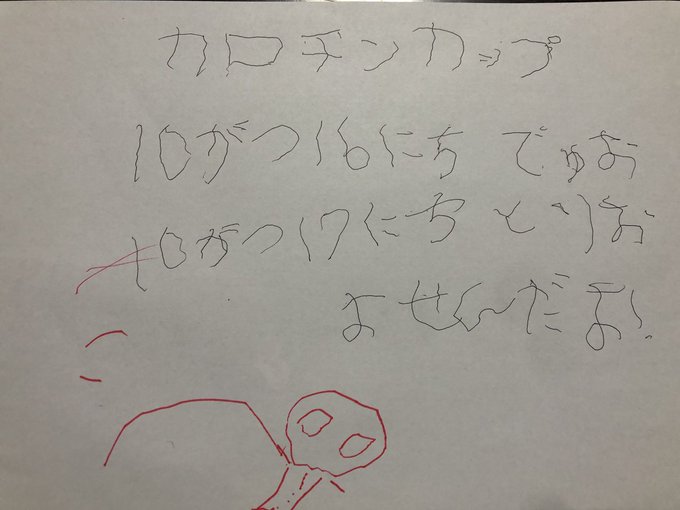 カロチンカップ
10がつ16にち でゅお
10がつ17にち とりお
よせんだよ!